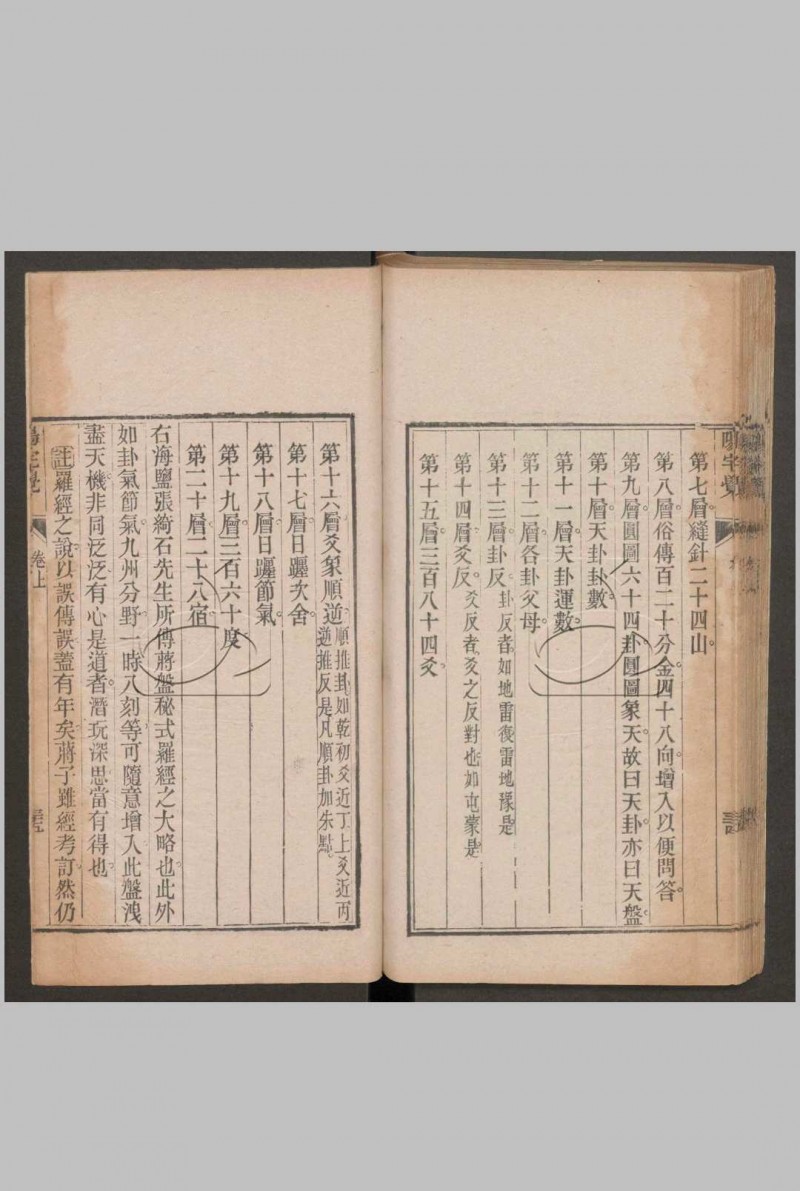 第七層縫針二十四山。
第八層俗傳百二十分金。四十八向。增入以便問答。
第九層。圓圖六十四卦圓圖象天。故曰天卦。亦曰天盤。
第十層。天卦卦數。
第十一層。天卦運數。
第十二層。各卦父母。
第十三層。卦反。卦反者。如地雷復雷地豫是
第十四層。爻反。爻反者。爻之反對也。如屯蒙是
第十五層。三百八十四爻。
第十六層。爻象順逆。順推卦。如乾初爻近丁上爻近丙
逆推反是。凡順卦加朱點。
第十七層。日躔次舍。
第十八層。日躔節氣。
第十九層。三百六十度
第二十層。二十八宿。
右海鹽張綺石先生所傳蔣盤秘式羅經之大略也。此外
如卦氣節氣。九州分野。一時八刻等。可隨意增入。此盤洩
盡天機。非同泛泛。有心是道者。潛玩深思。當有得也。
註羅經之說。以誤傳誤。蓋有年矣。蔣子雖經考訂。然仍
卷上